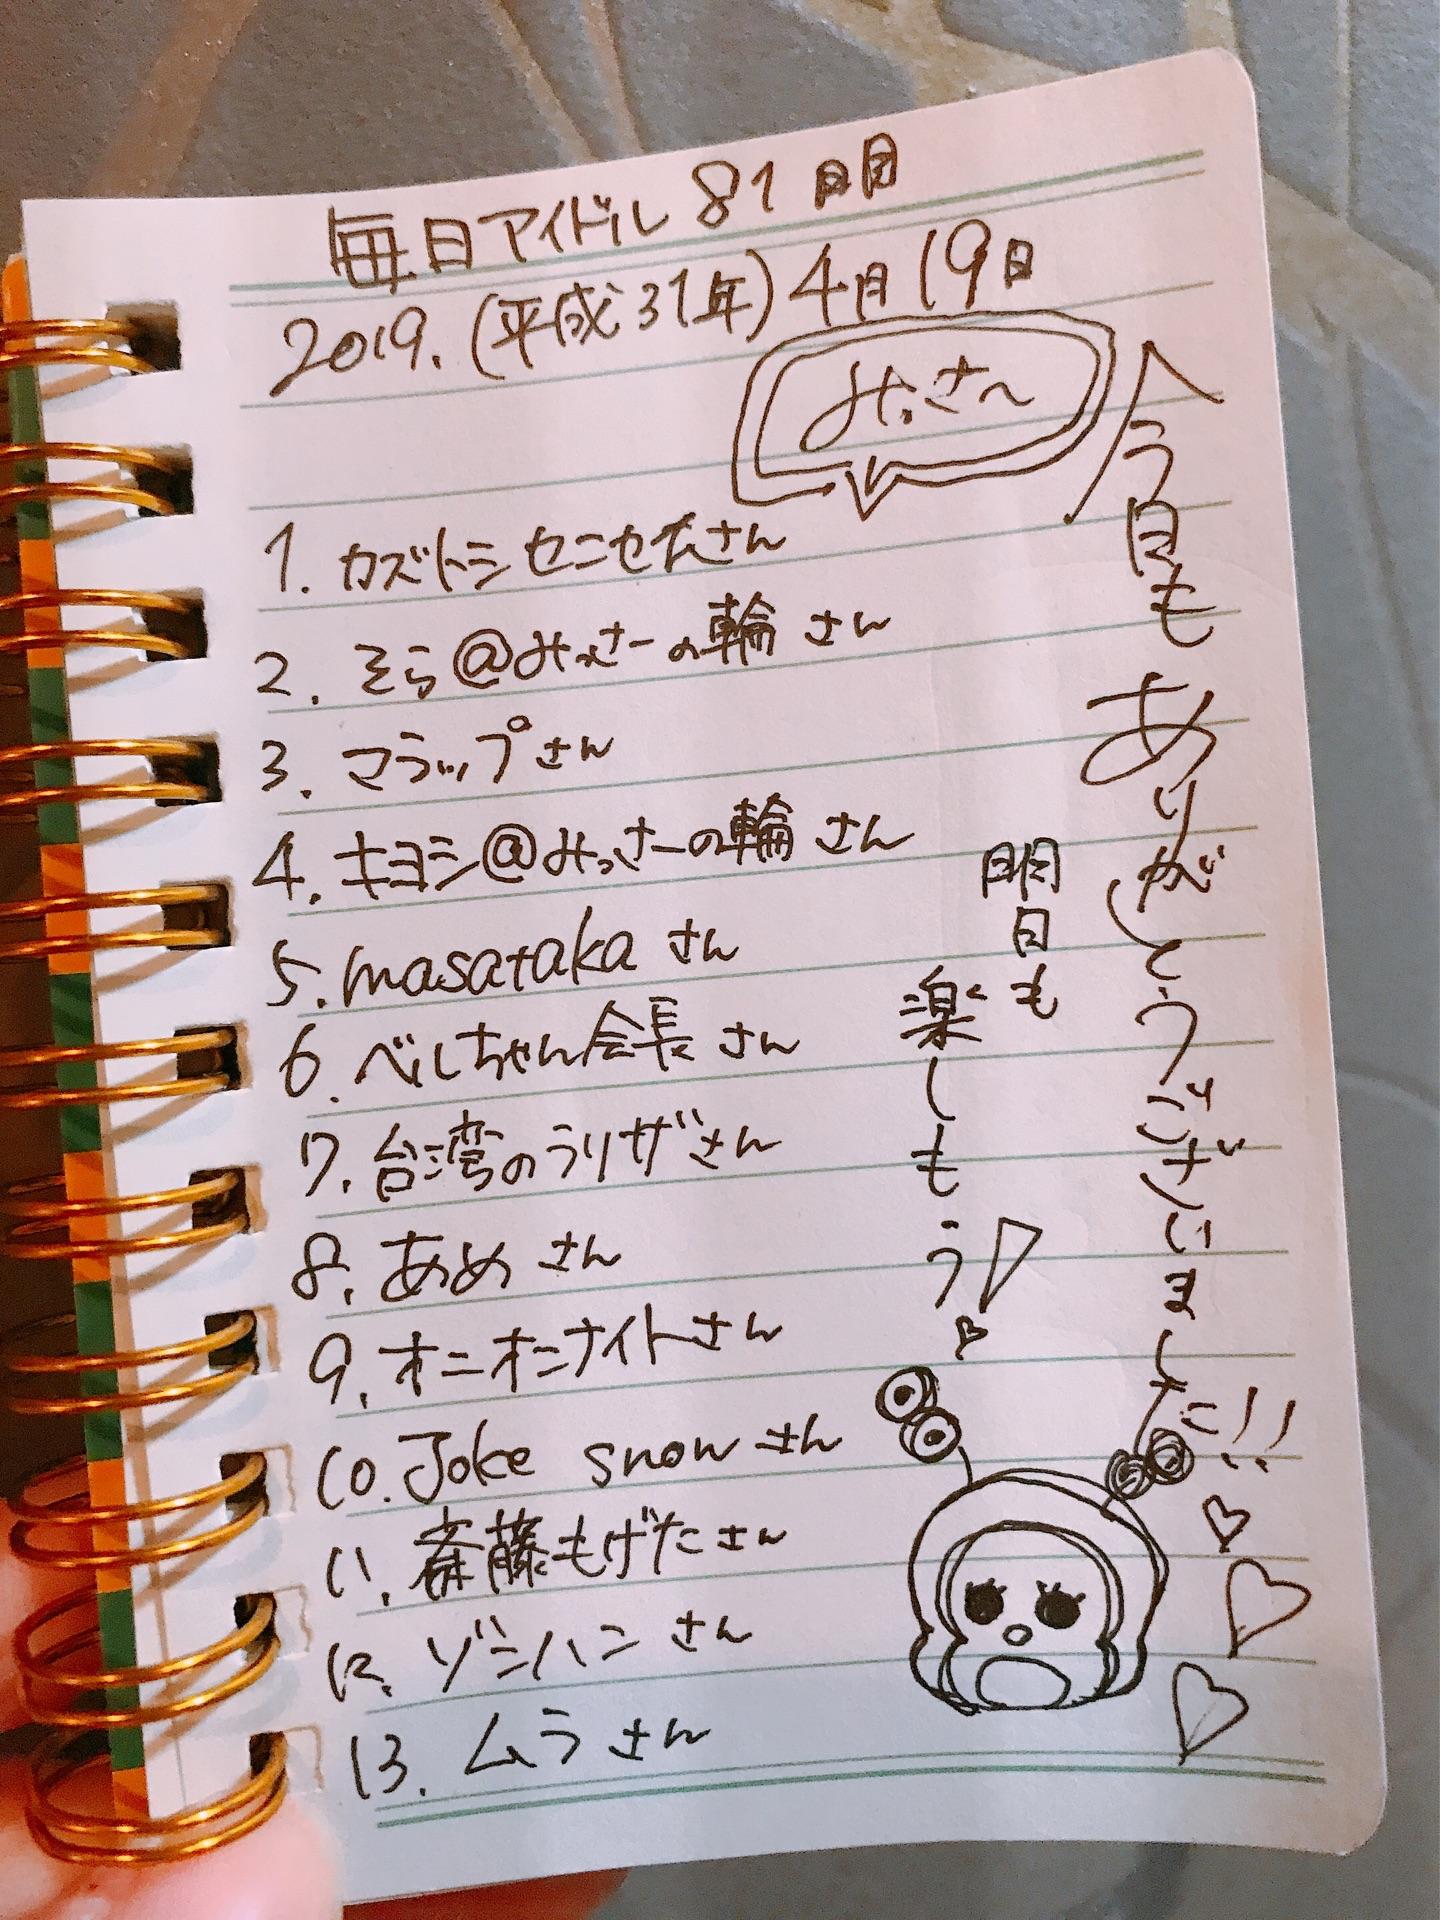 毎日アイドル 81日目
2019.(平成31年)4月19日
みっさ〜
1. カズトシセニセたさん
2. そら@みっさーの輪 さん
3. マラップさん
4. キヨシ@みっさーの輪 さん
5. masataka さん
6. べしちゃん会長 さん
7. 台湾のうりザさん
8. あめ さん
9. オニオンナイトさん
10. Joke snow さん
11. 斎藤もげたさん
12. ゾンハン さん
13. ムラ さん
今日もありがとうございました!!
明日も
楽しもう!